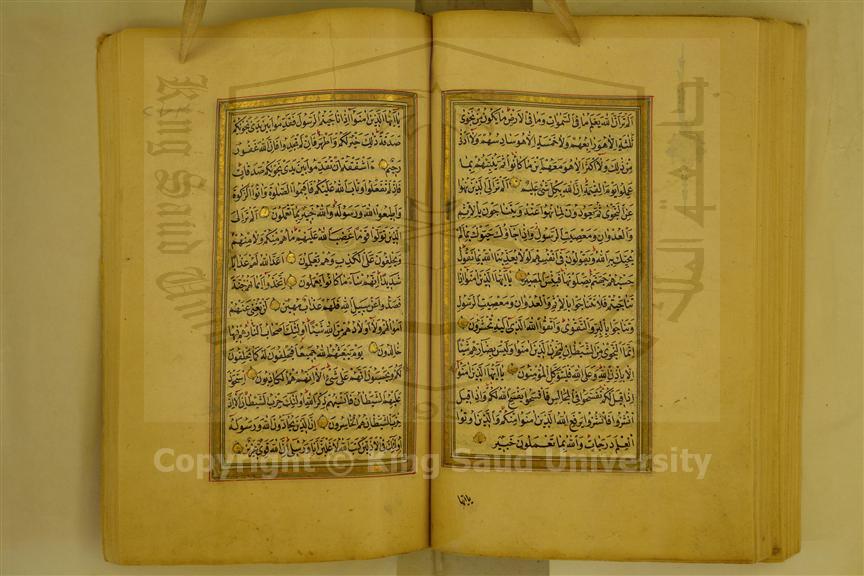 الم تر ان الله يعلم ما فى السموات وما فى الارض ما يكون من نجوى
ثلثة الا هو رابعهم ولا خمسة الا هو سادسهم ولا ادنى
من ذلك ولا اكثر الا هو معهم اين ما كانوا ثم ينبئهم بما
عملوا يوم القيمة ان الله بكل شئ عليم الم تر الى الذين نهوا
عن النجوى ثم يعودون لما نهوا عنه ويتناجون بالاثم
والعدوان ومعصيت الرسول واذا جاؤك حيوك بما لم
يحيك به الله ويقولون فى انفسهم لولا يعذبنا الله بما نقول
حسبهم جهنم يصلونها فبئس المصير يا ايها الذين امنوا اذا
تناجيتم فلا تتناجوا بالاثم والعدوان ومعصيت الرسول
وتناجوا بالبر والتقوى واتقوا الله الذى اليه تحشرون
انما النجوى من الشيطان ليحزن الذين امنوا وليس بضارهم شيئا
الا باذن الله وعلى الله فليتوكل المؤمنون يا ايها الذين امنوا
اذا قيل لكم تفسحوا فى المجالس فافسحوا يفسح الله لكم واذا قيل
انشزوا فانشزوا يرفع الله الذين امنوا منكم والذين اوتوا
العلم درجات والله بما تعملون خبير
يا ايها
يا ايها الذين امنوا اذا ناجيتم الرسول فقدموا بين يدى نجويكم
صدقة ذلك خير لكم واطهر فان لم تجدوا فان الله غفور
رحيم ءاشفقتم ان تقدموا بين يدى نجويكم صدقات
فاذ لم تفعلوا وتاب الله عليكم فاقيموا الصلوة واتوا الزكوة
واطيعوا الله ورسوله والله خبير بما تعملون الم تر الى
الذين تولوا قوما غضب الله عليهم ما هم منكم ولا منهم
ويحلفون على الكذب وهم يعلمون اعد الله لهم عذابا
شديدا انهم ساء ما كانوا يعملون اتخذوا ايمانهم جنة
فصدوا عن سبيل الله فلهم عذاب مهين لن تغنى عنهم
اموالهم ولا اولادهم من الله شيئا اولئك اصحاب النار هم فيها
خالدون يوم يبعثهم الله جميعا فيحلفون له كما يحلفون
لكم ويحسبون انهم على شئ الا انهم هم الكاذبون استحوذ
عليهم الشيطان فانسيهم ذكر الله اولئك حزب الشيطان الا ان
حزب الشيطان هم الخاسرون ان الذين يحادون الله ورسوله
اولئك فى الاذلين كتب الله لاغلبن انا ورسلى ان الله قوى عزيز
King Saud University
جامعة الملك
Copyright © King Saud University